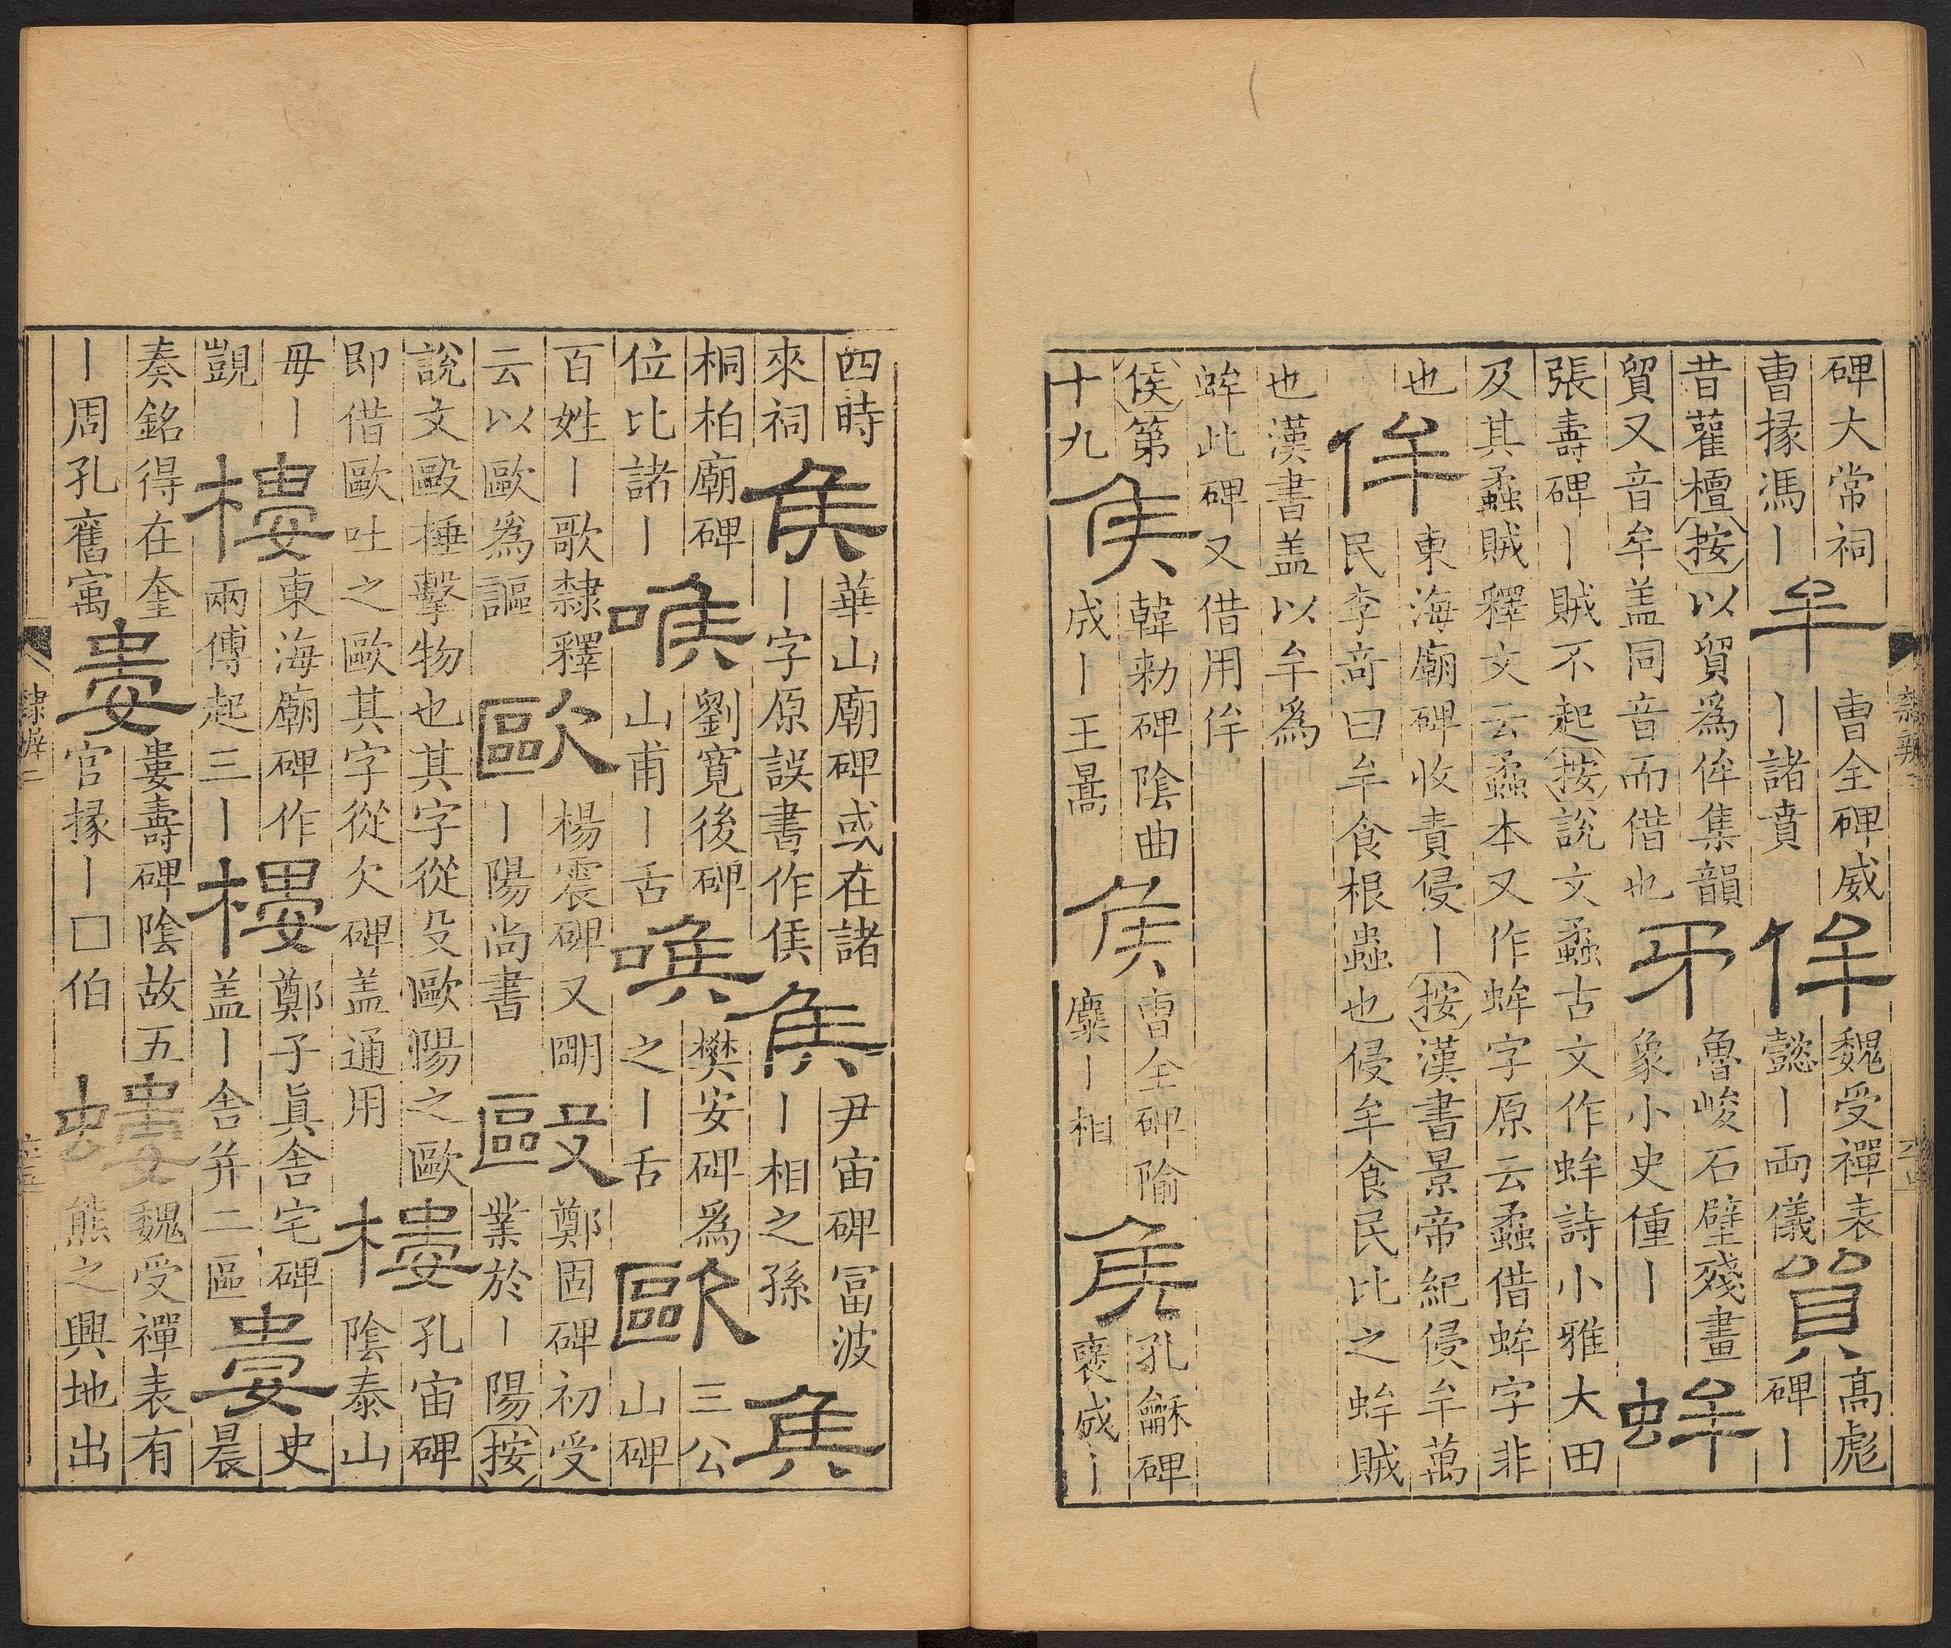 碑大常祠
曹掾馮丨
牟
曹全碑威
丨諸賁
侔
魏受禪表
懿丨両儀
貿
高彪
碑丨
昔雚檀按以貿爲侔集韻
貿又音牟盖同音而借也
矛
魯峻石壁殘畫
象小史僮丨
蛑
張壽碑丨賊不起按說文蟊古文作蛑詩小雅大田
及其蟊賊釋文云蟊本又作蛑字原云蟊借蛑字非
也
侔
東海廟碑收責侵丨按漢書景帝紀侵牟萬
民李竒曰牟食根蟲也侵牟食民比之蛑賊
也漢書盖以牟爲
蛑此碑又借用侔
侯第
十九
侯
韓勑碑陰曲
成丨王暠
侯
曹全碑隃
麋丨相
侯
孔龢碑
襃成丨
四時
來祠
侯
華山廟碑或在諸
丨字原誤書作侯
侯
尹宙碑冨波
丨相之孫
侯
桐柏廟碑
位比諸丨
喉
劉寬後碑
山甫丨舌
喉
樊安碑爲
之丨舌
歐
三公
山碑
百姓丨歌隸釋
云以歐爲謳
歐
楊震碑又朙
丨陽尚書
毆
鄭固碑初受
業於丨陽按
說文毆捶擊物也其字從殳歐陽之歐
即借歐吐之歐其字從欠碑盖通用
樓
孔宙碑
陰泰山
毋丨
覬
樓
東海廟碑作
兩傅起三丨
樓
鄭子眞舍宅碑
盖丨舍并二區
婁
史
晨
奏銘得在奎
丨周孔舊寓
婁
婁壽碑陰故五
官掾丨□伯
螻
魏受禪表有
熊之興地出